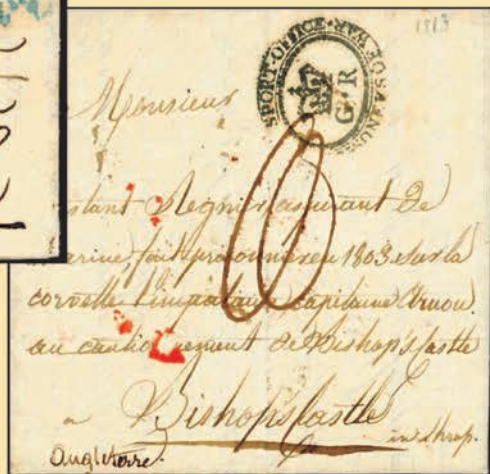 1813
TRANSPORT-OFFICE
PRISONERS OF WAR
G R
Monsieur
Regnier aspirant De
fait prisonnier en 1803 sur la
corvette l'impatiente capitaine Arnou
au cautionnement de Bishop's Castle
a Bishop's Castle
in Shrop.
Angleterre.